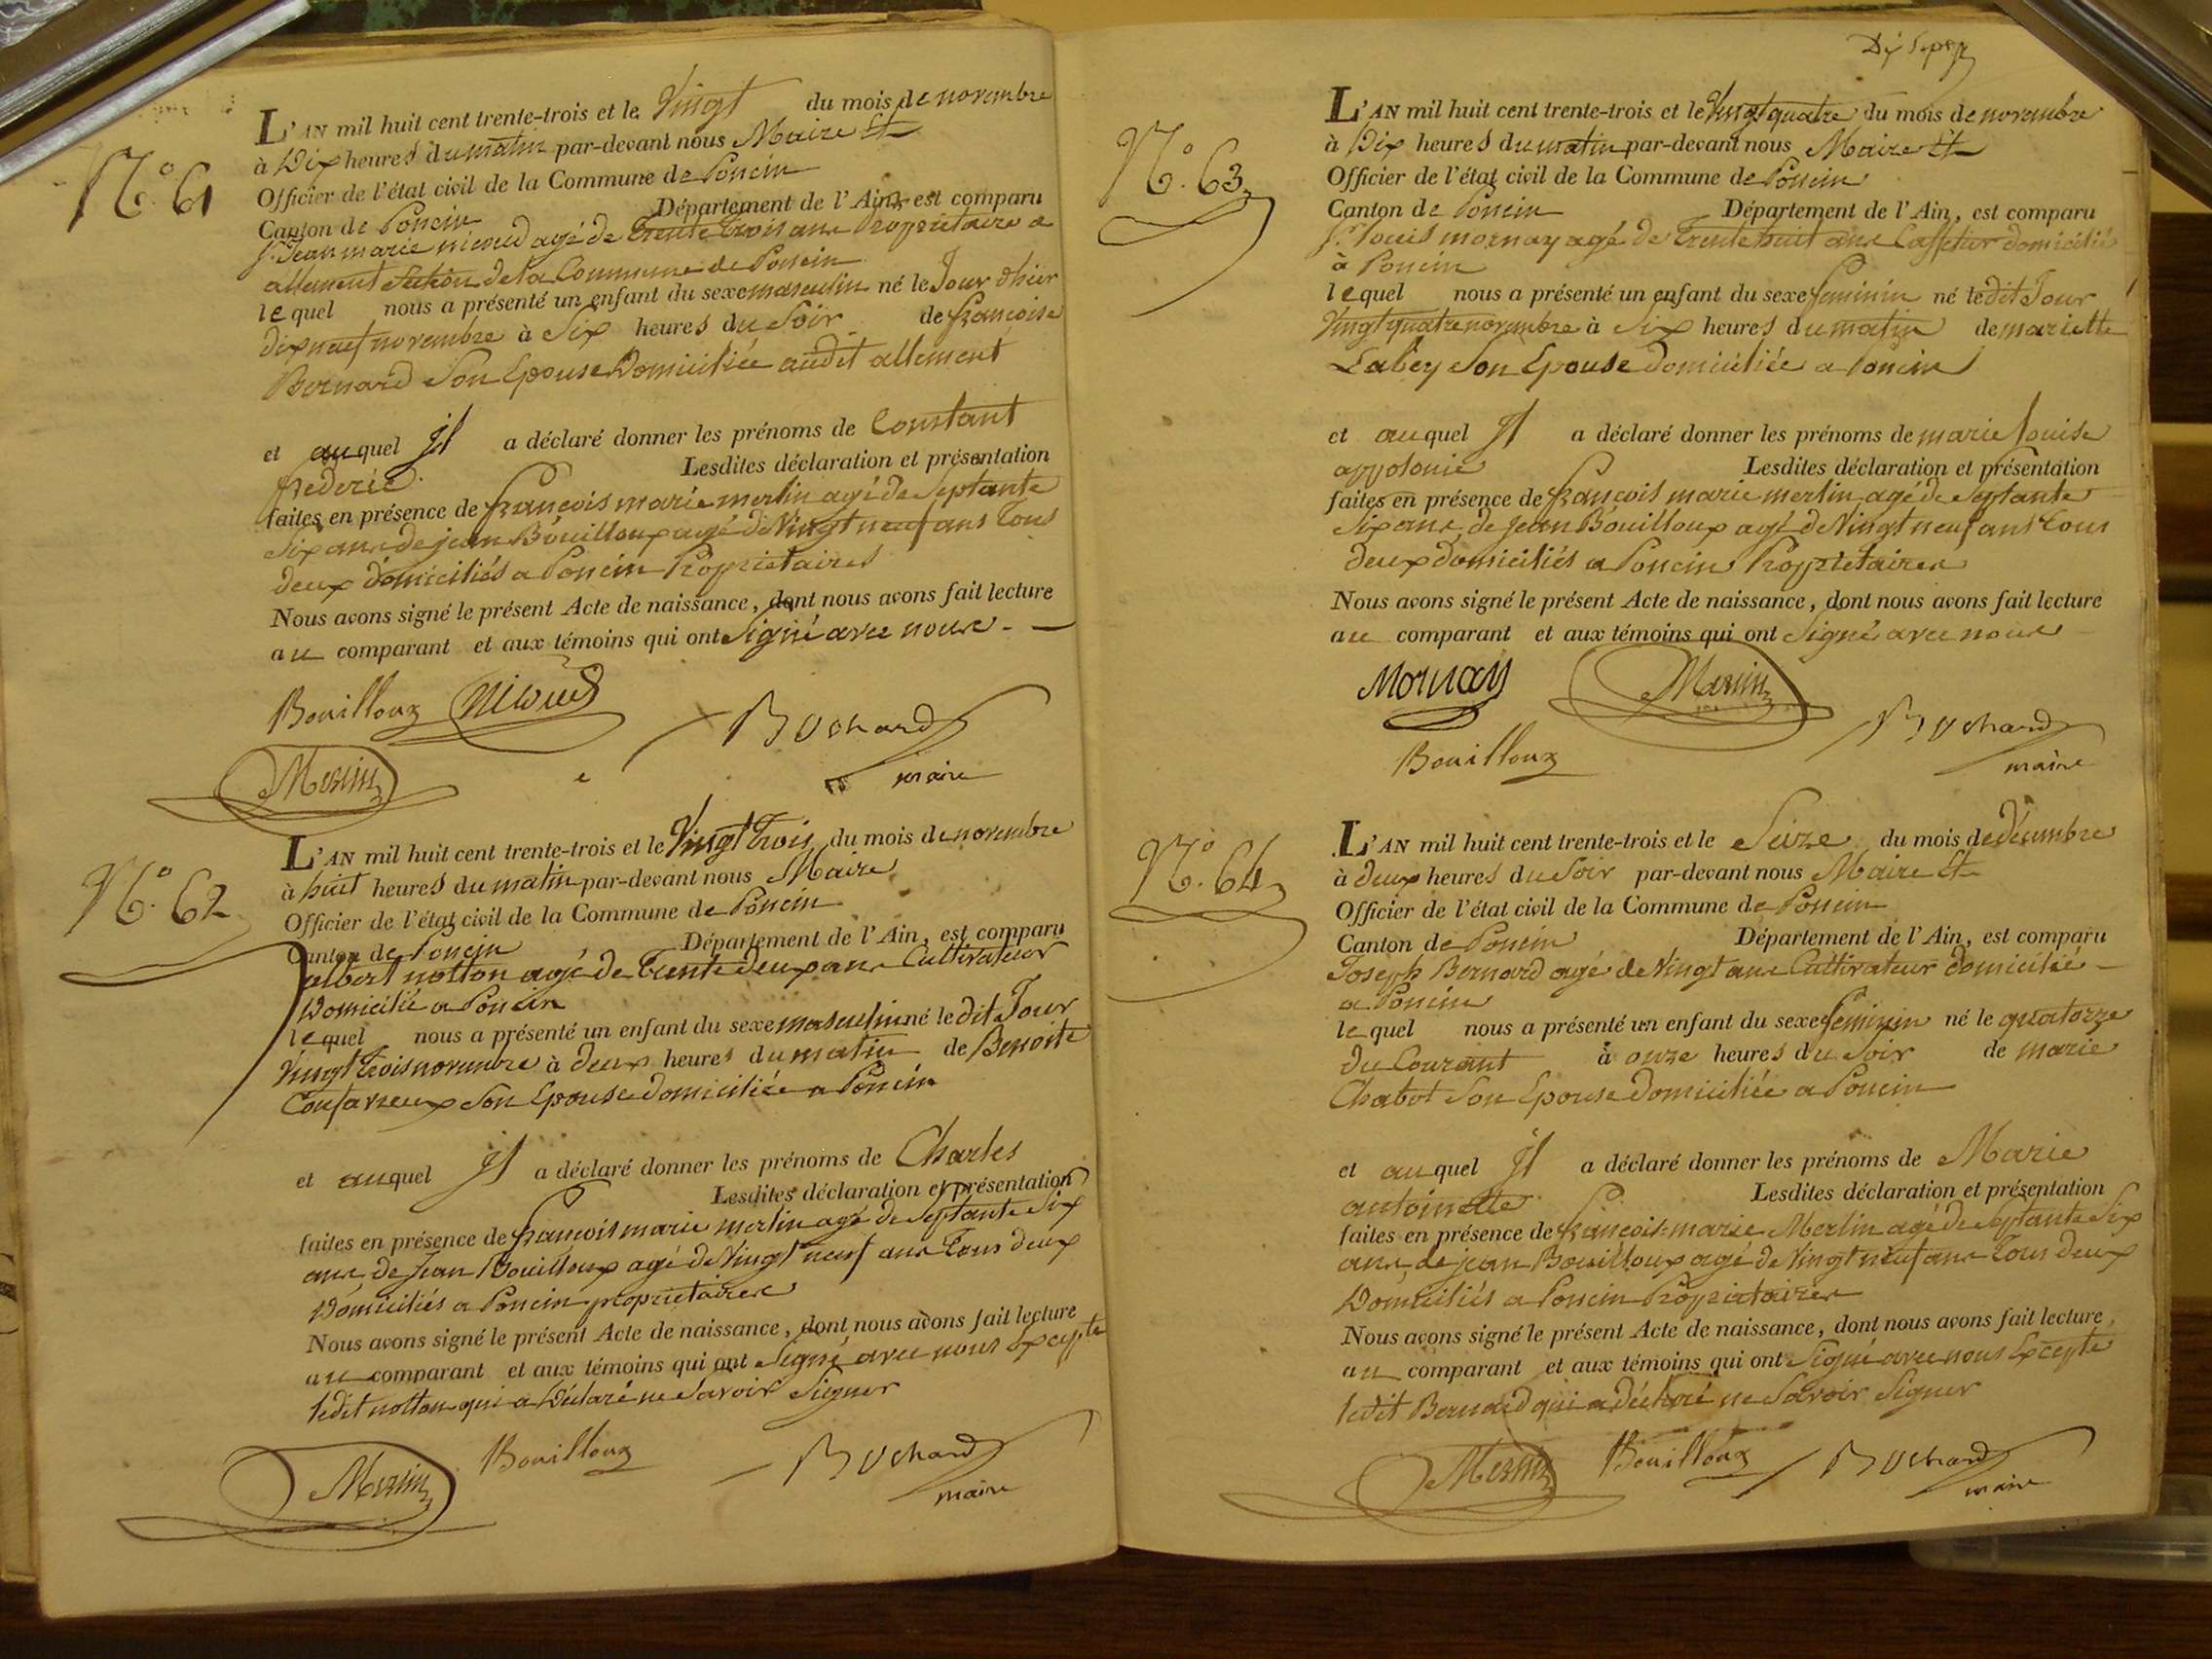 N.° 61
L'AN mil huit cent trente-trois et le Vingt du mois de novembre
à Dix heures du matin par-devant nous Maire Et
Officier de l'état civil de la Commune de Poncin
Canton de Poncin Département de l'Ain, est comparu
Sr. Jean marie nicoud agé de trente trois ans Propriétaire a
allement Section de la Commune de Poncin
lequel nous a présenté un enfant du sexe masculin né le Jour d'hier
dix neuf novembre à Six heures du Soir de francoise
Bernard Son Epouse Domiciliée audit allement
et auquel Il a déclaré donner les prénoms de Constant
frederic. Lesdites déclaration et présentation
faites en présence de francois marie merlin agé de Septante
Six ans, de jean Bouilloux agé de Vingt neuf ans tous
deux domiciliés a Poncin Propriétaires
Nous avons signé le présent Acte de naissance, dont nous avons fait lecture
au comparant et aux témoins qui ont Signé avec nous -
Bouilloux Nicoud Bochard
Merlin maire
N.° 62
L'AN mil huit cent trente-trois et le Vingt trois du mois de novembre
à huit heures du matin par-devant nous Maire
Officier de l'état civil de la Commune de Poncin
Canton de Poncin Département de l'Ain, est comparu
albert notton agé de Trente deux ans Cultivateur
Domicilié a Poncin
lequel nous a présenté un enfant du sexe masculin né le dit Jour
Vingt trois novembre à deux heures du matin de Benoite
Son Epouse domiciliée a Poncin
et auquel Il a déclaré donner les prénoms de Charles
Lesdites déclaration et présentation
faites en présence de francois marie merlin agé de Septante Six
ans, de Jean Bouilloux agé de Vingt neuf ans tous deux
Domiciliés a Poncin propriétaires
Nous avons signé le présent Acte de naissance, dont nous avons fait lecture
au comparant et aux témoins qui ont Signé avec nous Excepte
ledit notton qui a Déclaré ne Savoir Signer
Merlin Bouilloux Bochard
maire
N.° 63
L'AN mil huit cent trente-trois et le Vingt quatre du mois de novembre
à Dix heures du matin par-devant nous Maire Et
Officier de l'état civil de la Commune de Poncin
Canton de Poncin Département de l'Ain, est comparu
Sr. Louis mornay agé de Trente huit ans Caffetier domicilié
à Poncin
lequel nous a présenté un enfant du sexe feminin né le dit Jour
Vingt quatre novembre à Six heures du matin de mariette
Labey Son Epouse domiciliée a Poncin
et auquel Il a déclaré donner les prénoms de marie Louise
appolonie Lesdites déclaration et présentation
faites en présence de francois marie merlin agé de Septante
Six ans, de jean Bouilloux agé de Vingt neuf ans tous
deux domiciliés a Poncin Propriétaires
Nous avons signé le présent Acte de naissance, dont nous avons fait lecture
au comparant et aux témoins qui ont Signé avec nous
Mornay Merlin Bochard
Bouilloux maire
N.° 64
L'AN mil huit cent trente-trois et le Seize du mois de décembre
à deux heures du Soir par-devant nous Maire Et
Officier de l'état civil de la Commune de Poncin
Canton de Poncin Département de l'Ain, est comparu
Joseph Bernard agé de Vingt ans Cultivateur domicilié
a Poncin
lequel nous a présenté un enfant du sexe feminin né le quatorze
du Courant à onze heures du Soir de marie
Chabot Son Epouse Domiciliée a Poncin
et auquel Il a déclaré donner les prénoms de Marie
antoinette Lesdites déclaration et présentation
faites en présence de francois-marie Merlin agé de Septante Six
ans, de jean Bouilloux agé de Vingt neuf ans tous deux
Domiciliés a Poncin Propriétaires
Nous avons signé le présent Acte de naissance, dont nous avons fait lecture
au comparant et aux témoins qui ont Signé avec nous Excepte
ledit Bernard qui a déclaré ne Savoir Signer
Merlin Bouilloux Bochard
maire